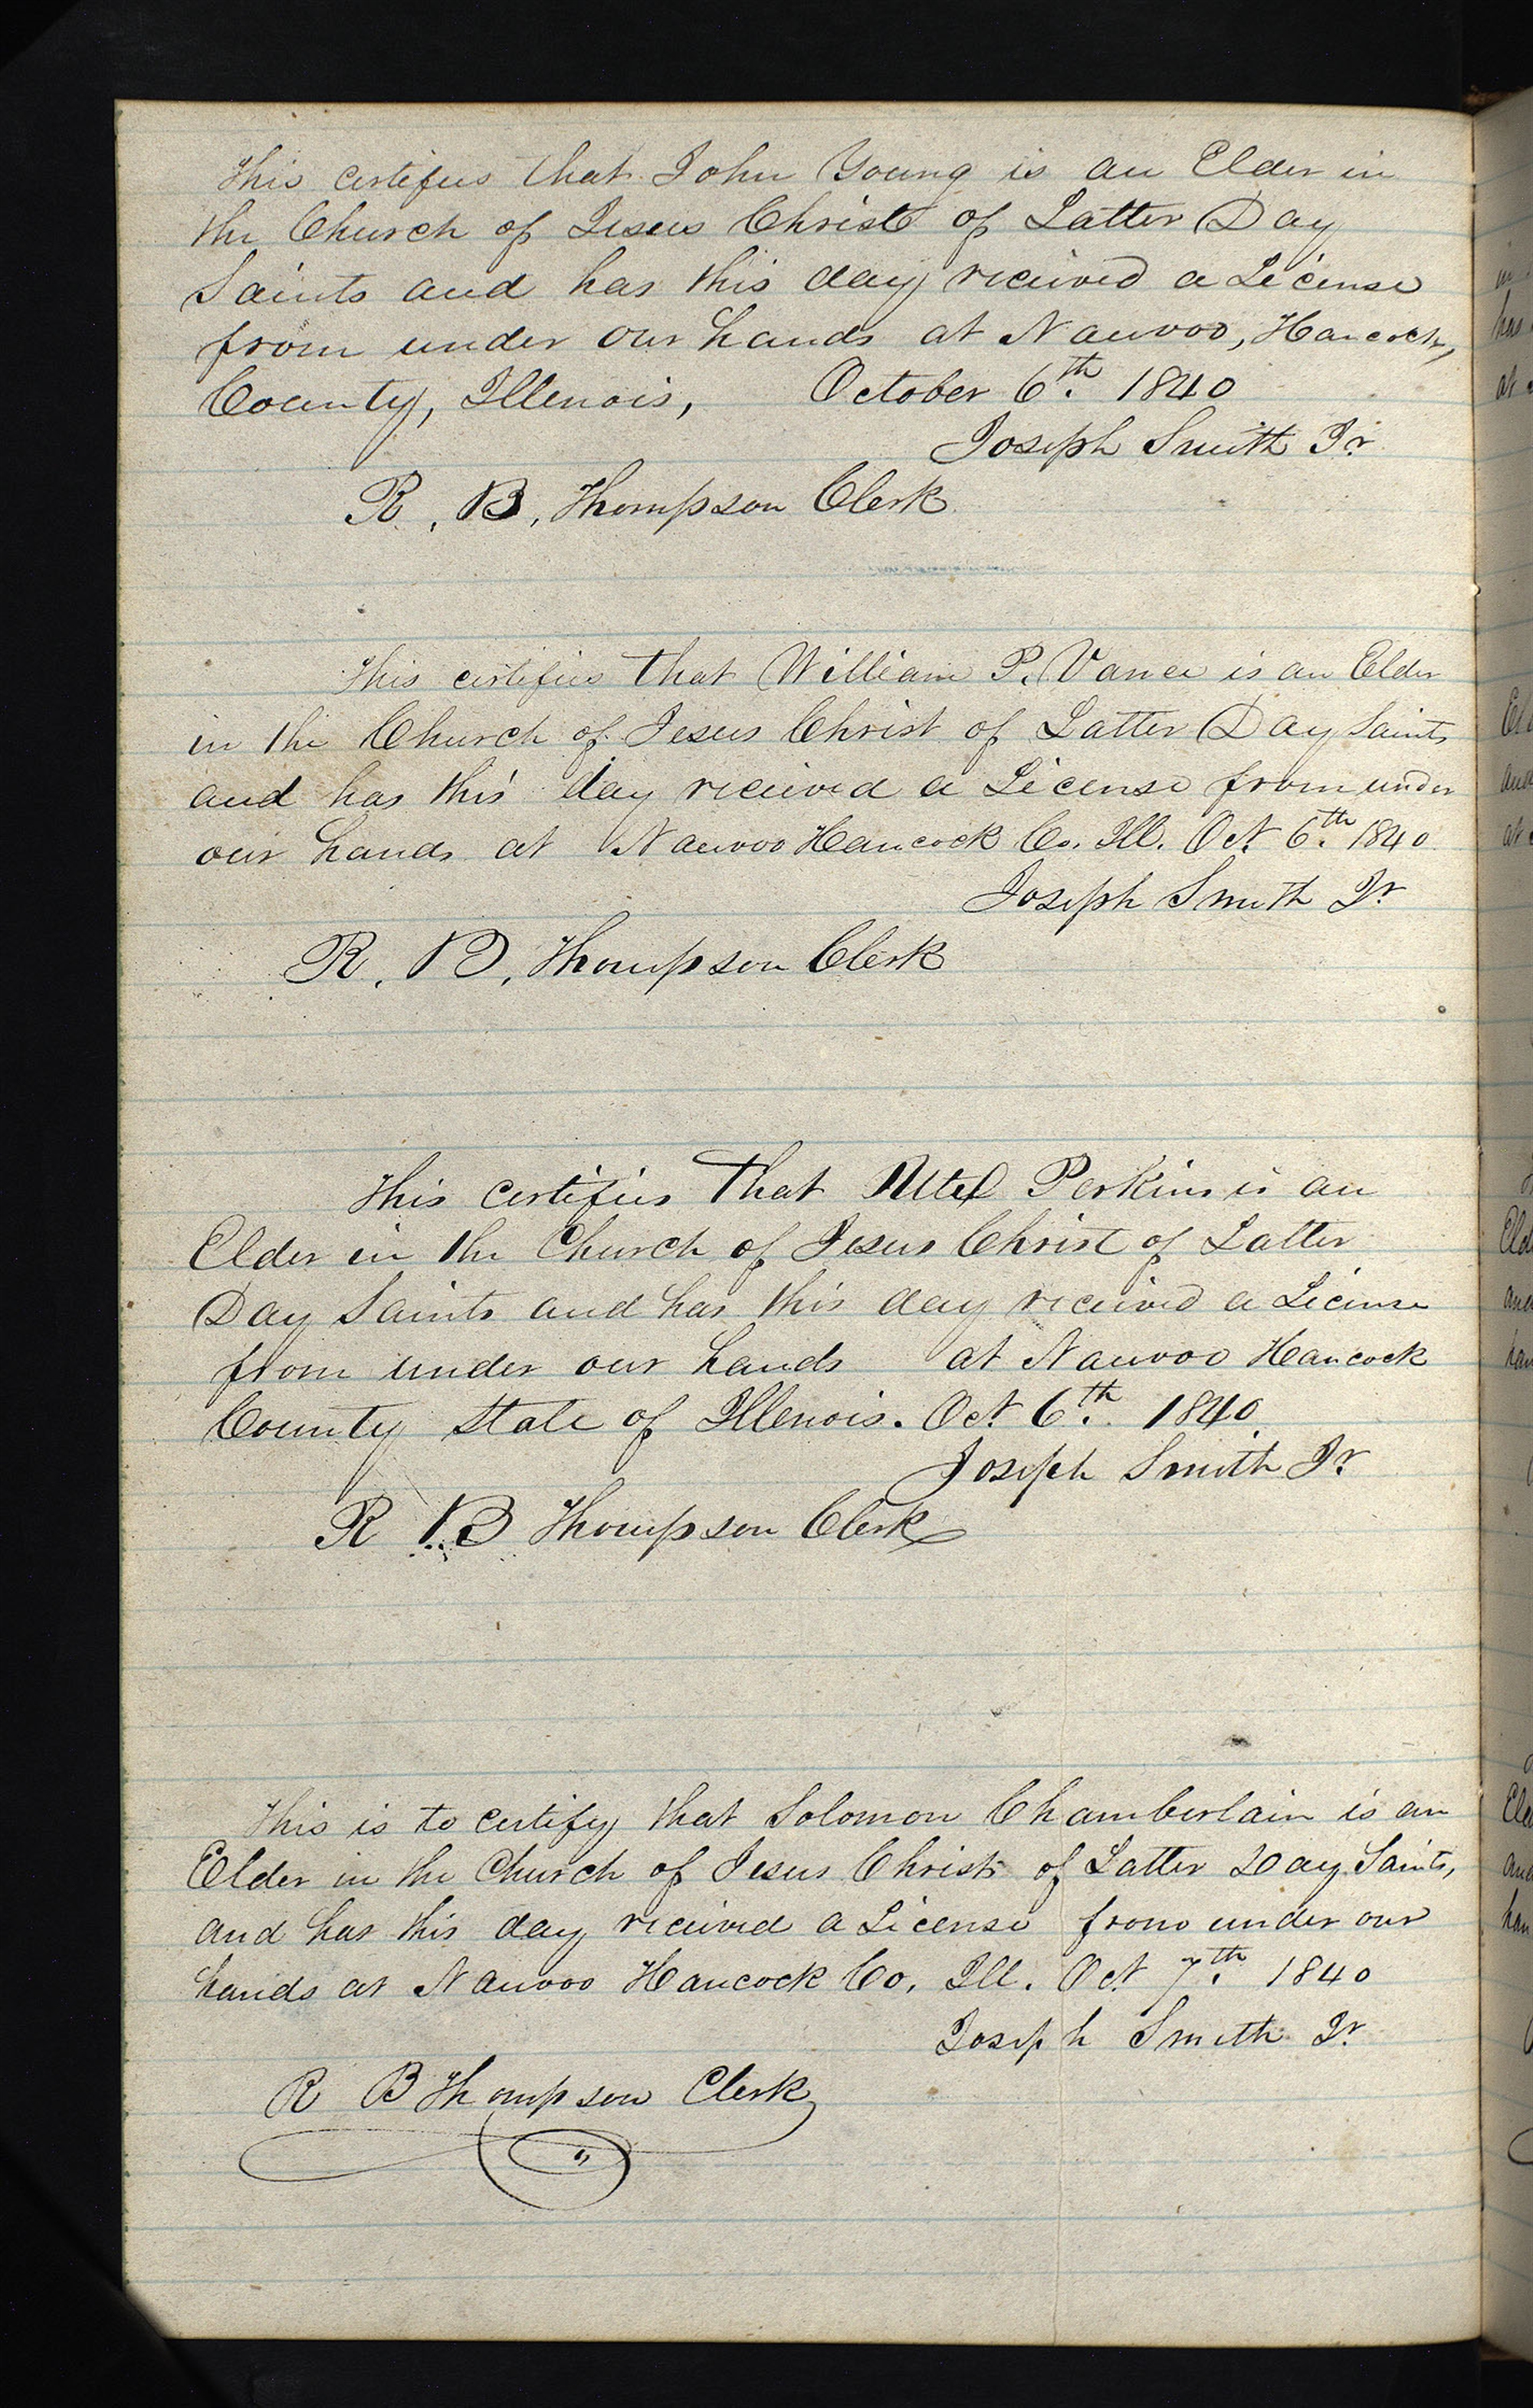 This certifies that John Young is an Elder in
the Church of Jesus Christ of Latter Day
Saints and has this day recieved a License
from under our hands at Nauvoo, Hancock,
County, Illenois, October 6th. 1840
Joseph Smith Jr.
R, B, Thompson Clerk
This certifies that William P. Vance is an Elder
in the Church of Jesus Christ of Latter Day Saints
and has this day recieved a License from under
our hands at Nauvoo Hancock Co. Ill. Oct. 6th. 1840
Joseph Smith Jr.
R, B, Thompson Clerk
This certifies that Utel Perkins is an
Elder in the Church of Jesus Christ of Latter
Day Saints and has this day recieved a License
from under our hands at Nauvoo Hancock
County State of Illenois. Oct. 6th. 1840
Joseph Smith Jr.
R B Thompson Clerk
This is to certify that Solomon Chamberlain is an
Elder in the Church of Jesus Christ of Latter Day Saints,
and has this day recieved a License from under our
hands at Nauvoo Hancock Co, Ill. Oct. 7th. 1840
Joseph Smith Jr.
R B Thompson Clerk